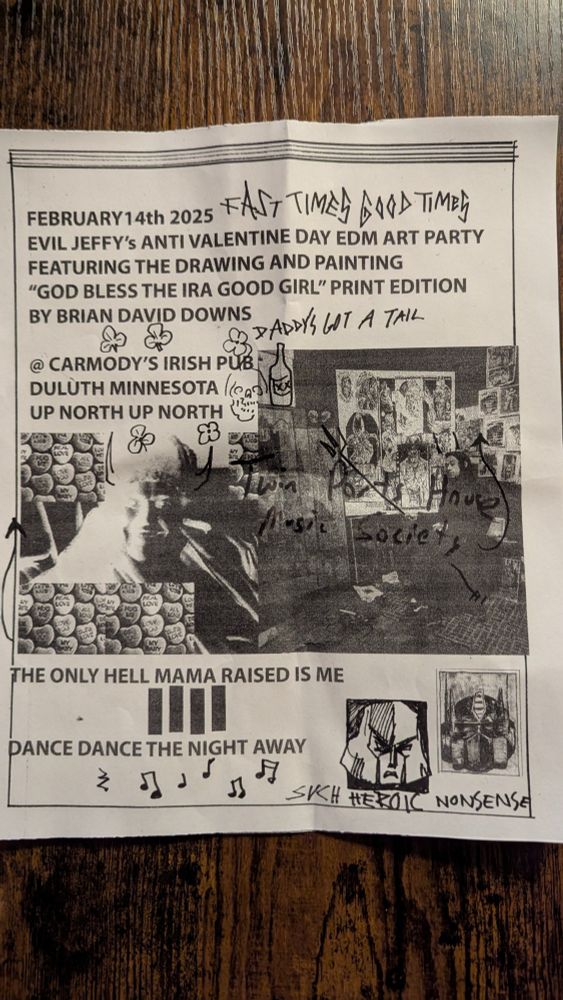 FEBRUARY14th 2025 FAST TIMES GOOD TIMES
EVIL JEFFY's ANTI VALENTINE DAY EDM ART PARTY
FEATURING THE DRAWING AND PAINTING
“GOD BLESS THE IRA GOOD GIRL” PRINT EDITION
BY BRIAN DAVID DOWNS
DADDYS GOT A TAIL
@ CARMODY'S IRISH PUB
DULUTH MINNESOTA
UP NORTH UP NORTH
XX
Twin Ports House
Music Society
THE ONLY HELL MAMA RAISED IS ME
DANCE DANCE THE NIGHT AWAY
SUCH HEROIC NONSENSE